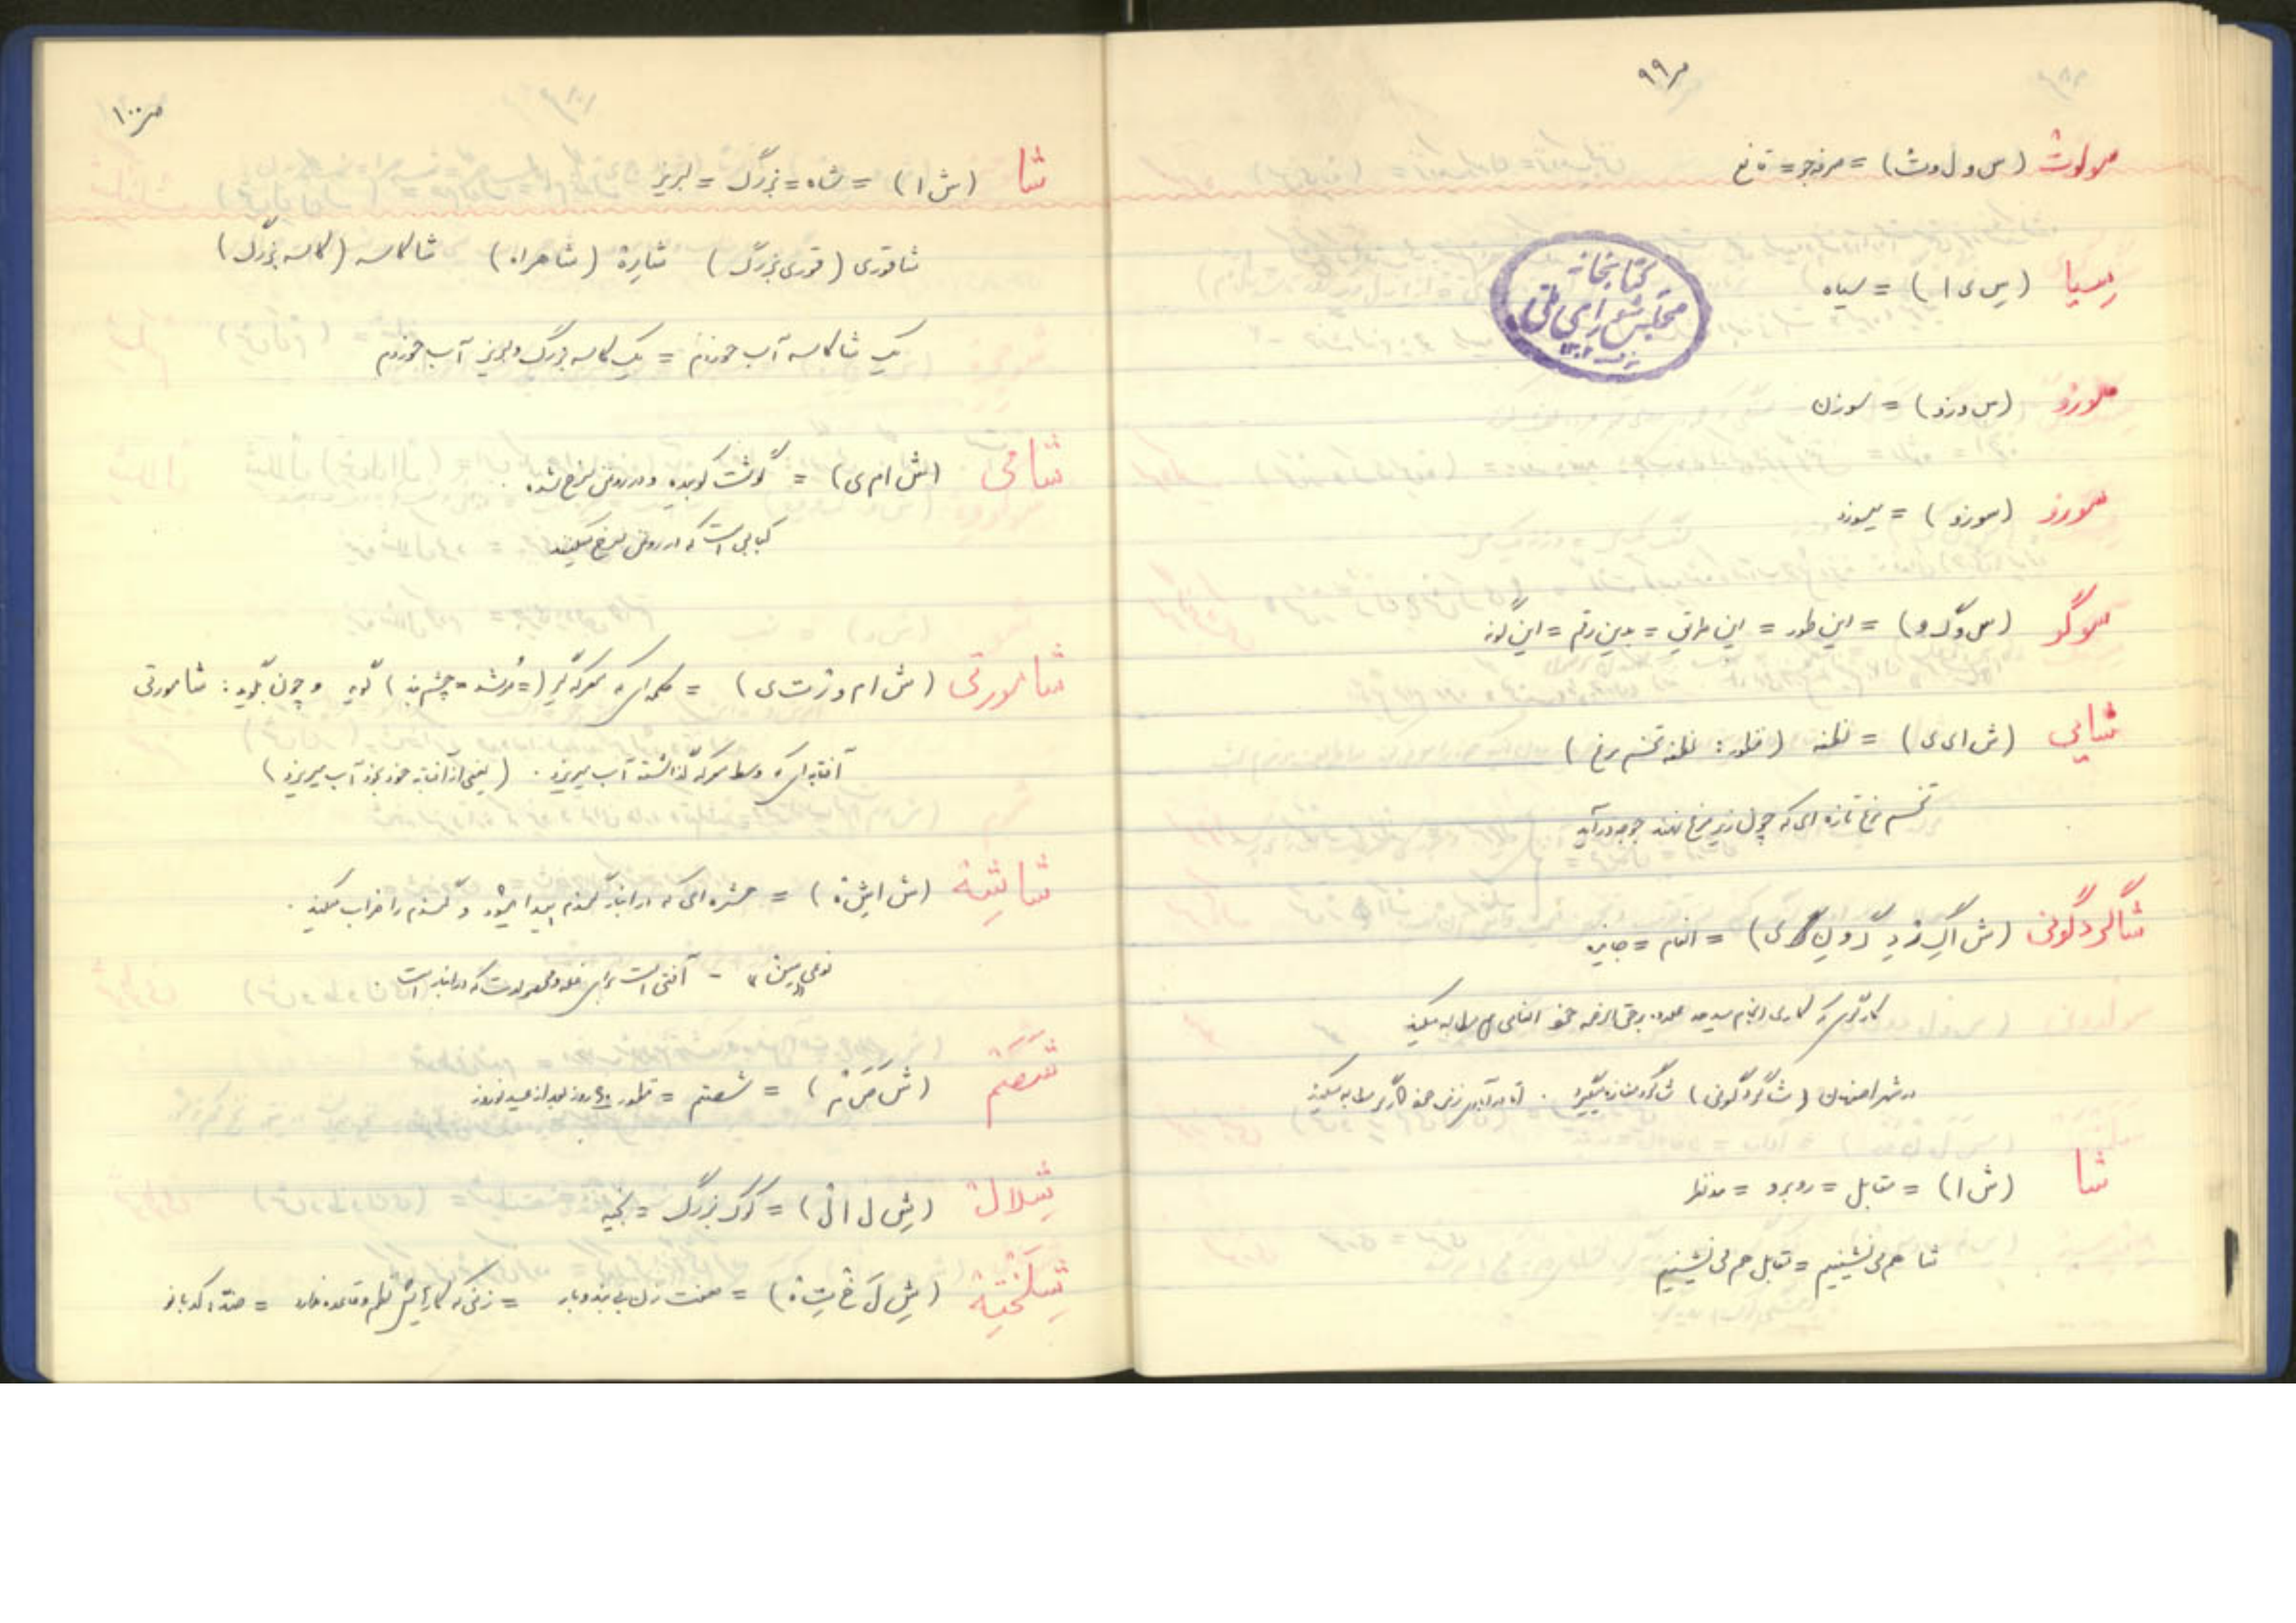 ص ۹۹
سولوث (س و ل و ث) = صرفه‌جو = قانع
سیا (س ی ا) = سیاه
کتابخانه مجلس شورای ملی
۱۳۰۲
سوزو (س و ز و) = سوزن
سوزو (سوزو) = میسوزد
سوگو (س و گ و) = این طور = این طریق = بدین رقم = این گونه
شایی (ش ا ی ی) = نطفه (منظور: نطفه تخم مرغ)
تخم مرغ تازه ای که چون زیر مرغ نهند جوجه درآید
شاگردگونی = انعام = جایزه
کارگری که کاری انجام میدهد علاوه بر حق‌الزحمه خود انعامی مطالبه میکند
در شهر اصفهان (شاگردگونی) شاگرد مغازه میگیرد . خود کارگر مطالبه میکند
شا (ش ا) = مقابل = روبرو = مد نظر
شا هم می نشینیم = مقابل هم می نشینیم
ص ۱۰۰
شا (ش ا) = شاه = بزرگ = لبریز
شاقوری (قوری بزرگ) شارة (شاهراه) شاکاسه (کاسه بزرگ)
یک شاکاسه آب خوردم = یک کاسه بزرگ و لبریز آب خوردم
شامی (ش ا م ی) = گوشت کوبیده و در روغن سرخ شده .
کبابی است که در روغن سرخ میکنند
شامورتی (ش ا م و ر ت ی) = کلمه ای که معرکه گیر (= مرشد = چشم بند) گوید و چون بگوید : شامورتی
آفتابه ای که وسط معرکه گذاشته آب میریزد . (یعنی از آفتابه خود بخود آب میریزد)
شاشة = حشره ای که در انبار گندم پیدا میشود و گندم را خراب میکند .
آفتی است برای غله و محصولات که در انبار است
شصتم (ش ص ت م) = شصتم = منظور ۶۰ روز بعد از عید نوروز
شلال (ش ل ا ل) = کوک بزرگ = بخیه
شلخته (ش ل خ ت ه) = صفت زن بی بند و بار = زنی که کارهایش نظم و قاعده ندارد = ضد: کدبانو